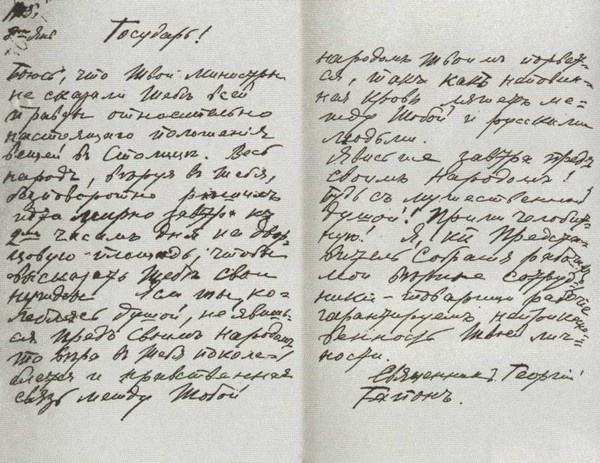 1905
8го Янв
Государь!
Боюсь, что Твои министры
не сказали Тебѣ всей
правды относительно
настоящаго положенія
вещей въ Столицѣ. Весь
народъ, вѣруя въ Тебя,
безповоротно рѣшилъ
идти мирно завтра къ
2мъ часамъ дня на Двор-
цовую площадь, чтобы
высказать Тебѣ свои
нужды. Если ты, ко-
леблясь душой, не явишь-
ся предъ своимъ народомъ
то вѣра въ Тебя поколе-
блется и нравственная
связь между Тобой
народомъ Твоимъ порвет-
ся, такъ какъ неповин-
ная кровь ляжетъ ме-
жду Тобой и русскими
людьми.
Явись же завтра предъ
своимъ Народомъ!
Будь съ мужественной
душой! Прими челобит-
ную! Я, Предста-
витель Собранія рабочихъ
мои вѣрные сотруд-
ники-товарищи рабочіе
гарантируемъ неприкосно-
венность Твоей лич-
ности.
Священникъ Георгій
Гапонъ.